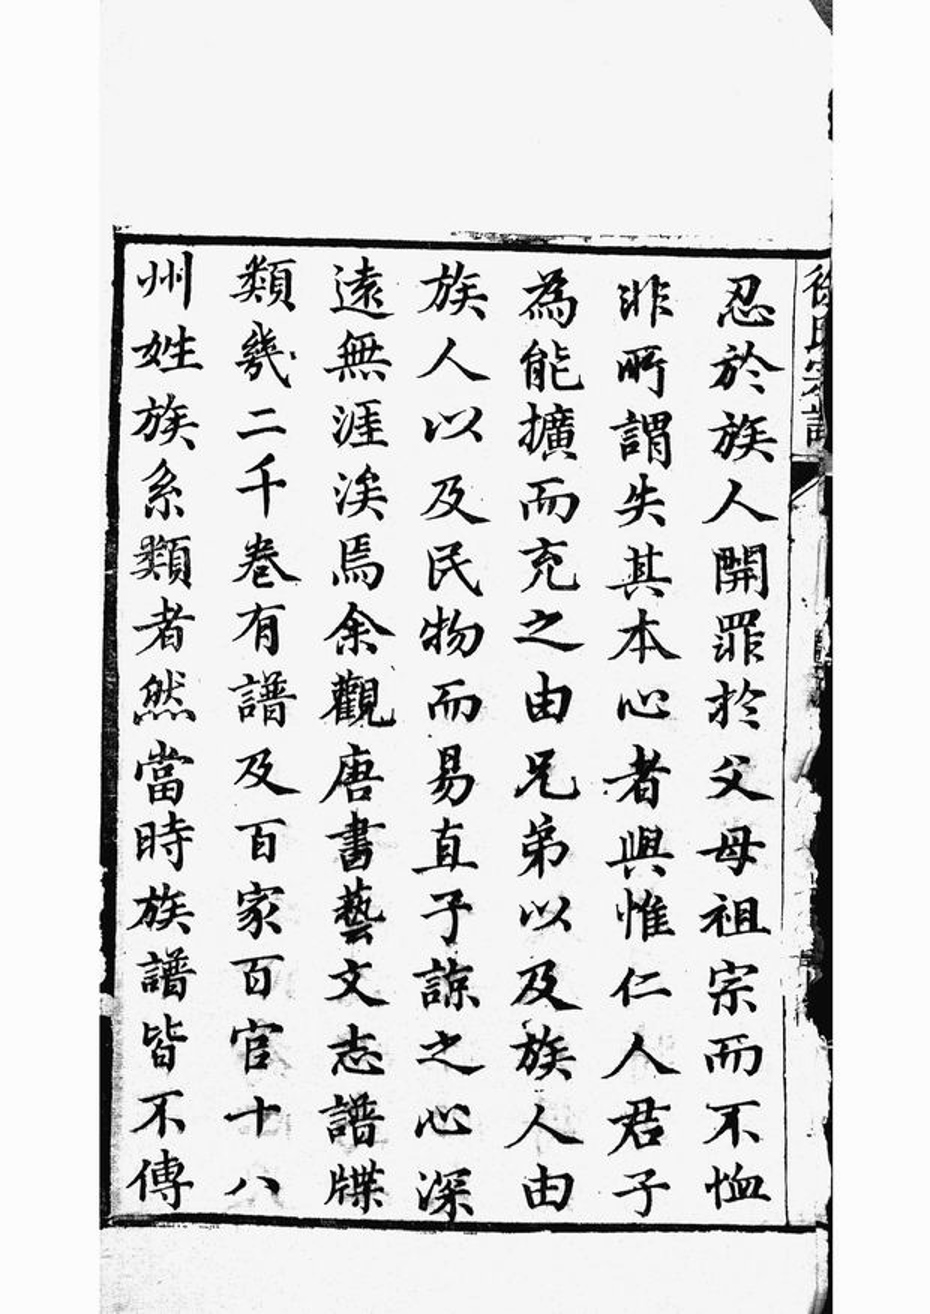 忍於族人開罪於父母祖宗而不恤
非所謂失其本心者與惟仁人君子
為能擴而充之由兄弟以及族人由
族人以及民物而易直子諒之心深
遠無涯涘焉余觀唐書藝文志譜牒
類幾二千卷有譜及百家百官十八
州姓族系類者然當時族譜皆不傳